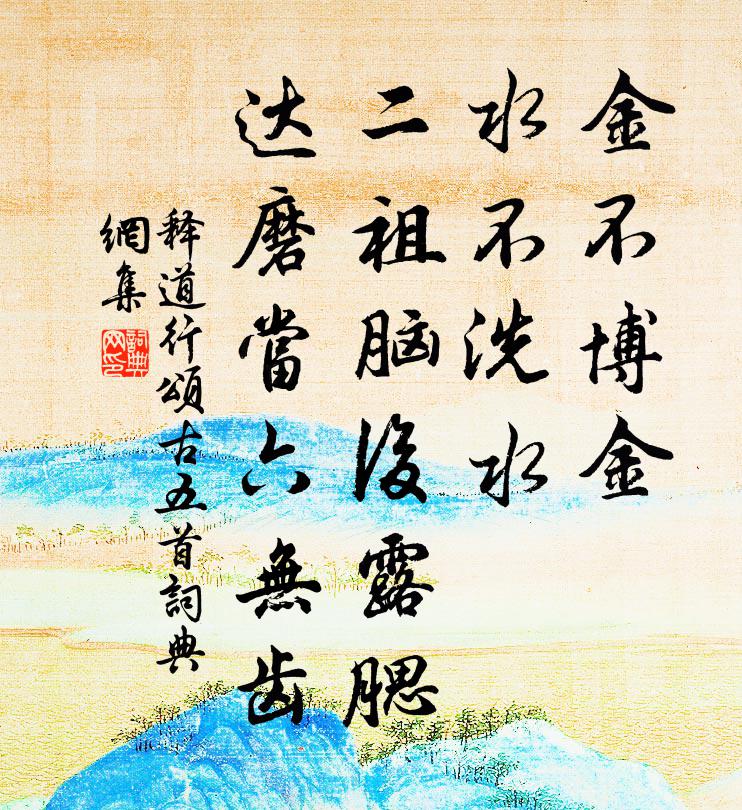 金不博金
水不洗水
二祖脑後露腮
达磨當六無齿
释道行頌古五首詞典
網集
詞典
网印